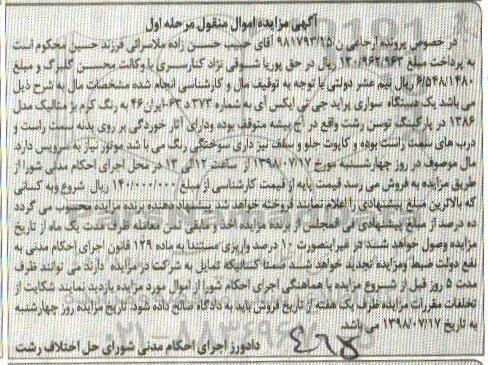 آگهی مزایده اموال منقول مرحله اول
در خصوص پرونده ارجاعی ن ۹۸۱۷۹۳/۱۵ آقای حبیب حسن زاده ملاسرائی فرزند حسن محکوم است
به پرداخت مبلغ ۱۳۰/۹۶۲/۹۶۳ ریال در حق پوریا شوقی نژاد کنارسری با وکالت محسن گلبرگ و مبلغ
۶/۵۴۸/۱۴۸۰ ریال نیم عشر دولتی با توجه به توقیف مال و کارشناسی انجام شده مشخصات مال به شرح ذیل
می باشد یک دستگاه سواری پراید جی تی ایکس آی به شماره ۳۷۳د۶۳-ایران۴۶ به رنگ کرم بژ متالیک مدل
۱۳۸۶ در پارکینگ توسن رشت واقع در متوقف بوده و دارای آثار خوردگی بر روی بدنه سمت راست و
درب های سمت راست بوده و کاپوت جلو و سقف نیز دارای سوختگی رنگ می باشد موتور نیاز به سرویس دارد.
مال موصوف در روز چهارشنبه مورخ ۱۳۹۸/۰۷/۱۷ از ساعت ۱۲ الی ۱۳ در محل اجرای احکام مدنی شورا از
طریق مزایده به فروش می رسد قیمت پایه از قیمت کارشناسی از مبلغ ۱۴۰/۰۰۰/۰۰۰ ریال شروع و به کسانی
که بالاترین مبلغ پیشنهادی را اعلام نمایند فروخته خواهد شد پیشنهاد دهنده برنده مزایده محسوب می گردد
ده درصد از مبلغ پیشنهادی فی المجلس از برنده مزایده اخذ و مابقی ثمن معامله ظرف مدت یک ماه از تاریخ
مزایده وصول خواهد شد در غیر اینصورت ۱۰ درصد واریزی مستندا به ماده ۱۲۹ قانون اجرای احکام مدنی به
نفع دولت ضبط و مزایده تجدید خواهد شد ضمنا کسانیکه تمایل به شرکت در مزایده دارند می توانند ظرف
مدت ۵ روز قبل از شروع مزایده با هماهنگی اجرای احکام شورا از اموال مورد مزایده بازدید نمایند شکایت از
تخلفات مقررات مزایده ظرف یک هفته از تاریخ فروش باید به دادگاه صالح داده شود. تاریخ مزایده روز چهارشنبه
به تاریخ ۱۳۹۸/۰۷/۱۷ می باشد.
دادورز اجرای احکام مدنی شورای حل اختلاف رشت